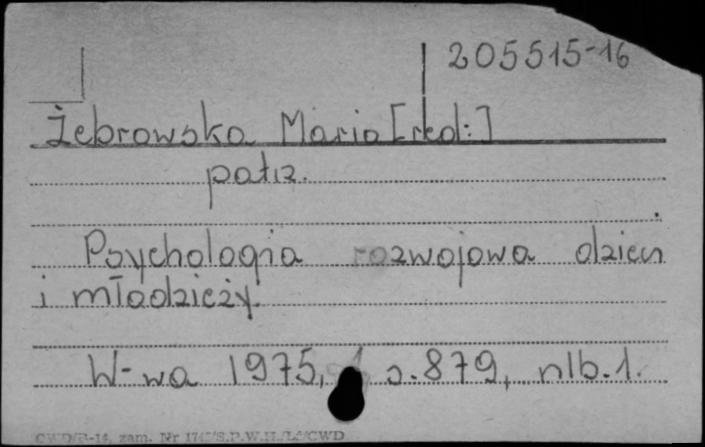 205515-16
Żebrowska Maria [red:]
patrz.
Psychologia rozwojowa dzieci
i młodzieży.
W-wa 1975, s. 879, nlb. 1.
zam. Nr